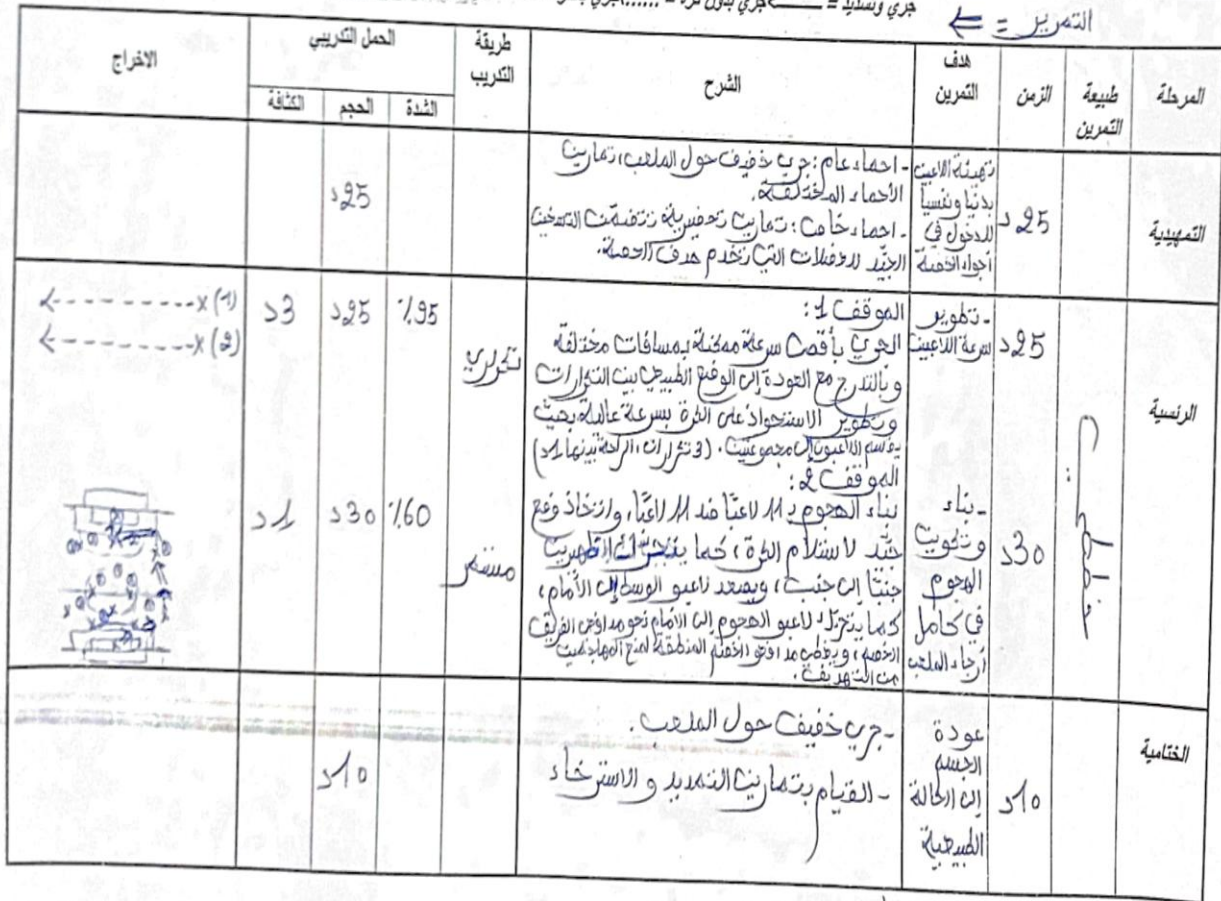 جري وتسديد = جري بدون كرة = ......جري
التمرير = ⇐
المرحلة
طبيعة التمرين
الزمن
هدف التمرين
الشرح
طريقة التدريب
الحمل التدريبي
الشدة
الحجم
الكثافة
الاخراج
التمهيدية
25د
تهيئة اللاعبين
بدنيا ونفسيا
للدخول في
أجواء الحصة
- احماء عام: جري خفيف حول الملعب، تمارين
الأحماء المختلفة.
- احماء خاص: تمارين تحضيرية تتضمن التسخين
الجيّد للعضلات التي تخدم هدف الحصة.
25د
الرئسية
25د
- تطوير
سرعة اللاعبين
الموقف 1:
الجري بأقصى سرعة ممكنة بمسافات مختلفة
وبالتدرج مع العودة إلى الوضع الطبيعي بين التكرارات
وتطوير الاستحواذ على الكرة بسرعة عالية بحيث
يقسم اللاعبون إلى مجموعتين. (3 تكرارات، الراحة بينها 1د)
تكراري
95%
25د
3د
x (1)
x (2)
30د
- بناء
وتكوين
الهجوم
في كامل
أرجاء الملعب
الموقف 2:
بناء الهجوم بـ 11 لاعبًا ضد 11 لاعبًا، واتخاذ وضع
جيّد لاستلام الكرة، كما يتحرك الظهيرين
جنبًا إلى جنب، ويصعد لاعبو الوسط إلى الأمام،
كما يتحرك لاعبو الهجوم إلى الأمام نحو مدافعي الفريق
الخصم، ويغطي مدافعو الخصم المنطقة لمنع المهاجمين
من التهديف.
مستمر
60%
30د
1د
الختامية
10د
عودة
الجسم
إلى الحالة
الطبيعية
- جري خفيف حول الملعب.
- القيام بتمارين التمديد والاسترخاء
10د